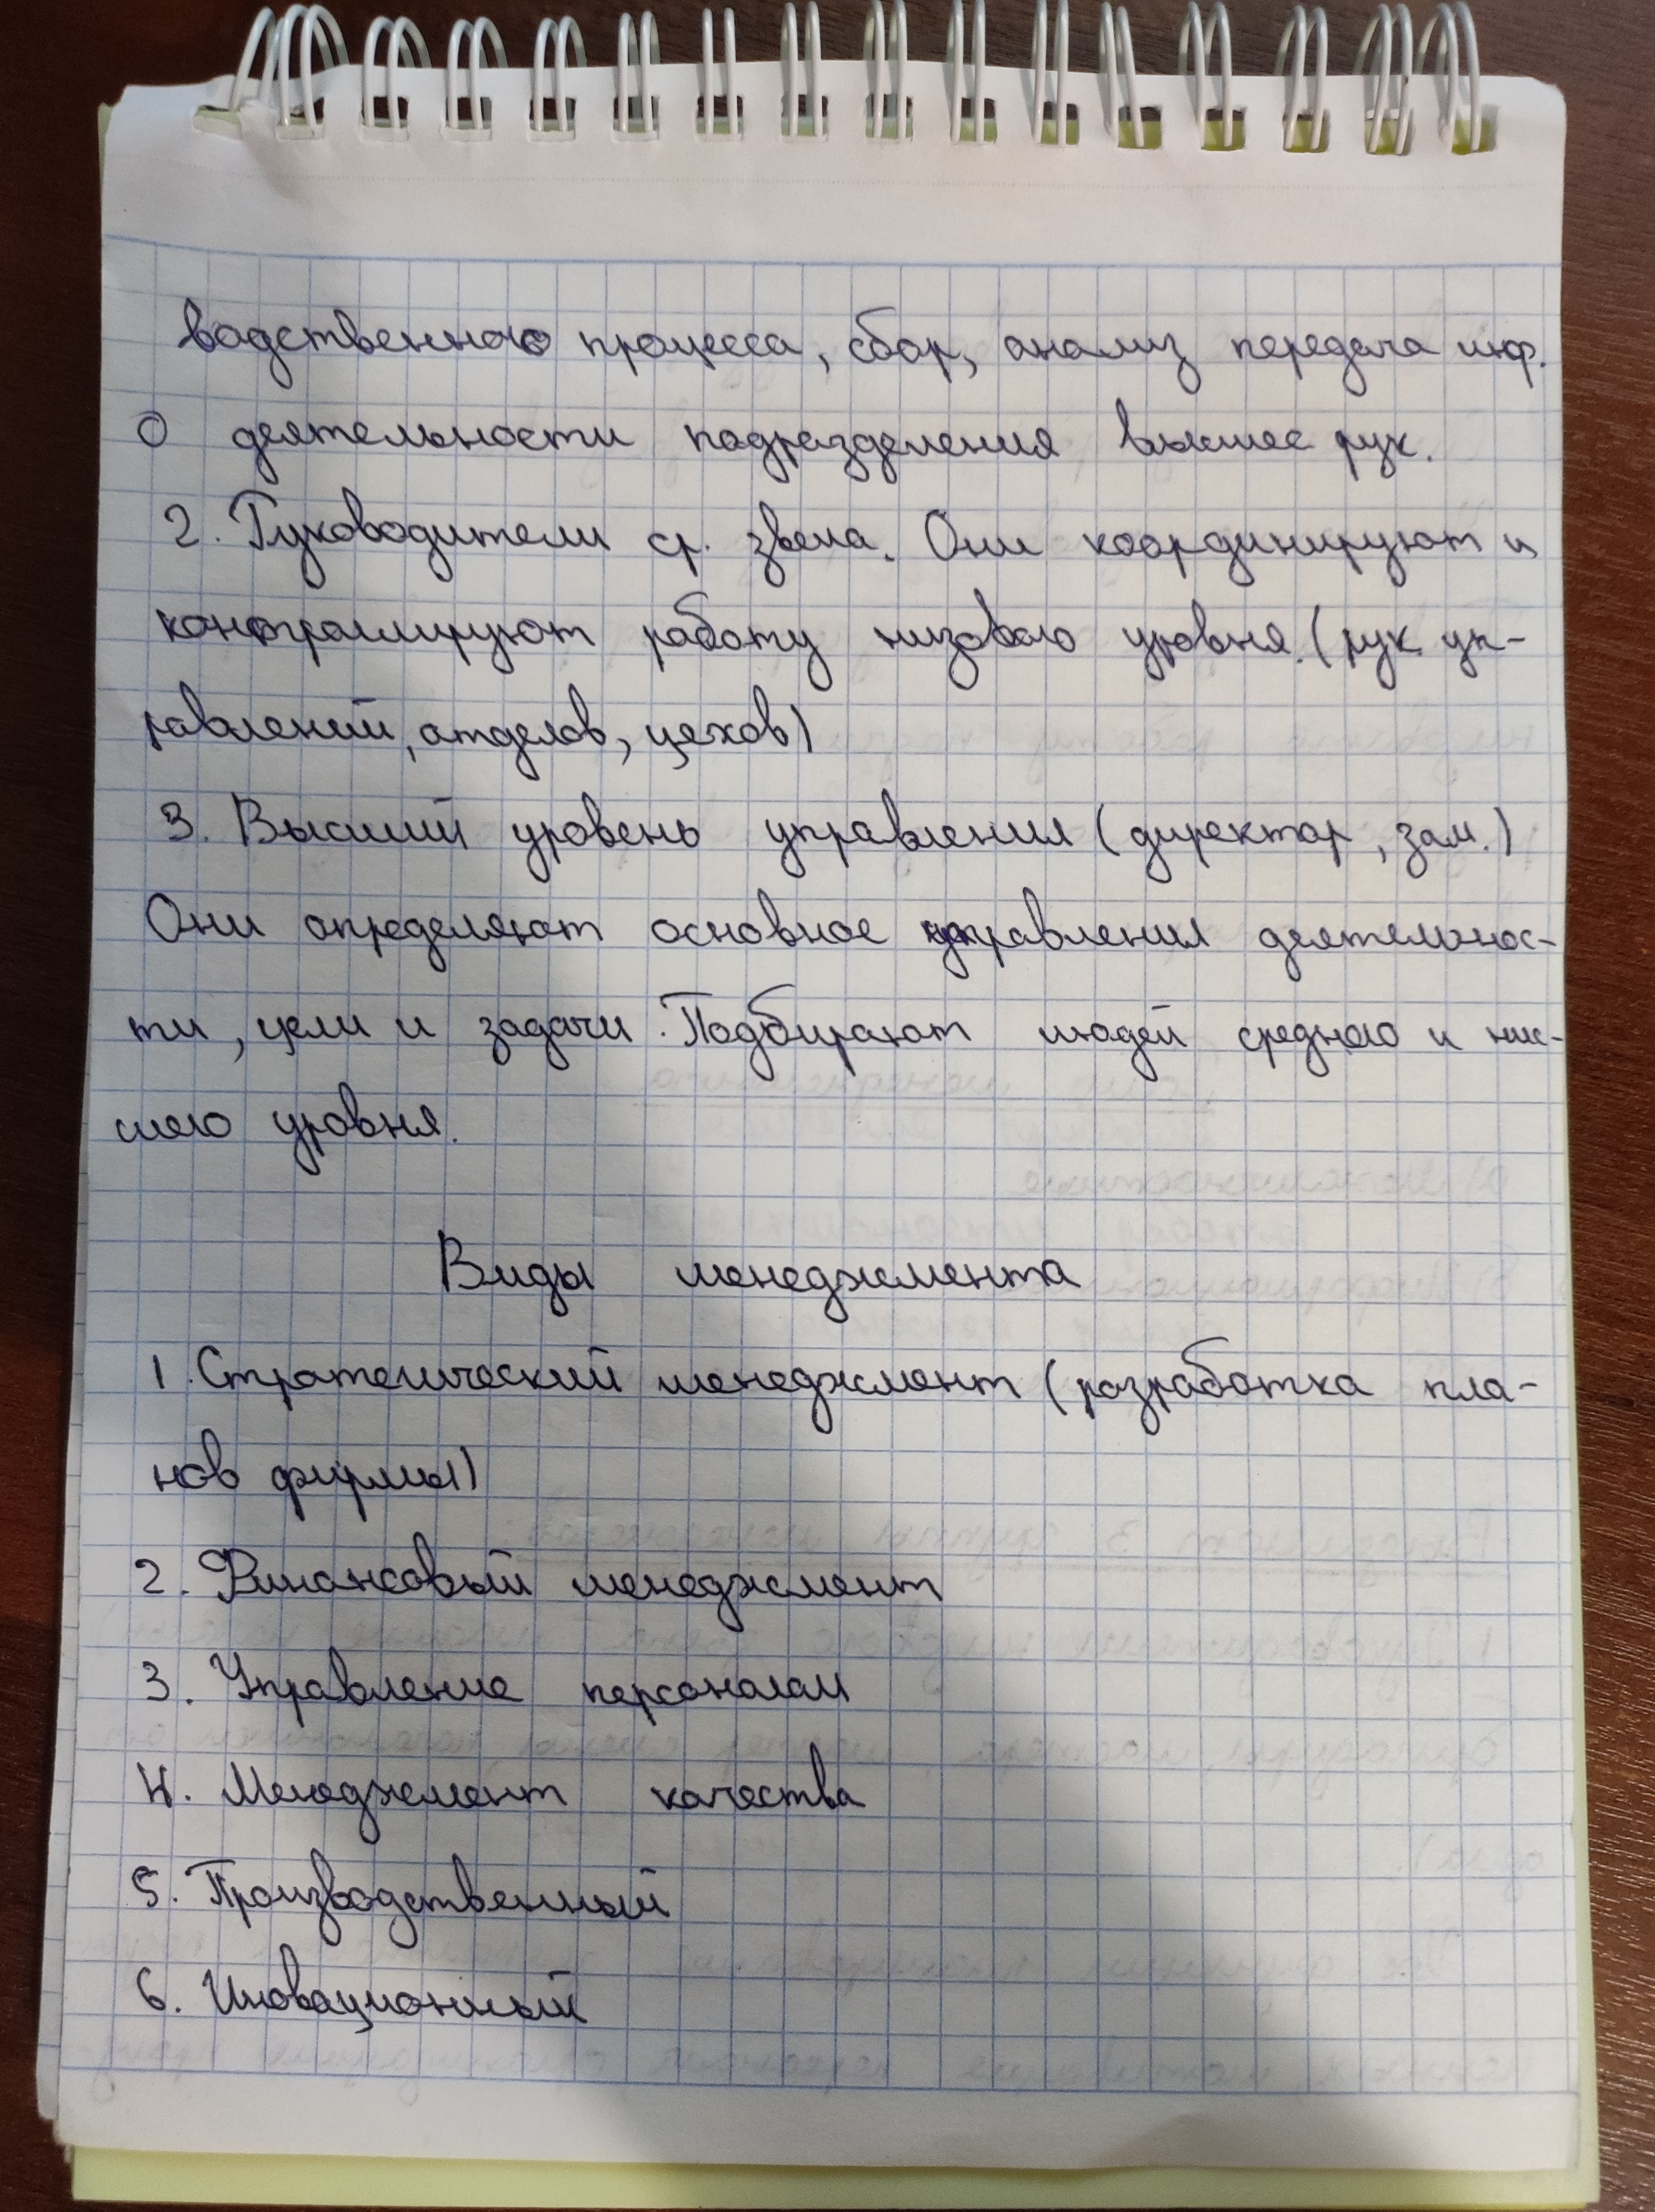 водственного процесса, сбор, анализ передача инф.
О деятельности подразделения высшее рук.
2. Руководители ср. звена. Они координируют и
контролируют работу низового уровня. (рук. уп-
равлений, отделов, цехов)
3. Высший уровень управления (директор, зам.)
Они определяют основное управления деятельнос-
ти, цели и задачи. Подбирают людей среднего и нис-
шего уровня.
Виды менеджмента
1. Стратегический менеджмент (разработка пла-
нов фирмы)
2. Финансовый менеджмент
3. Управление персоналом
4. Менеджмент качества
5. Производственный
6. Иновационный